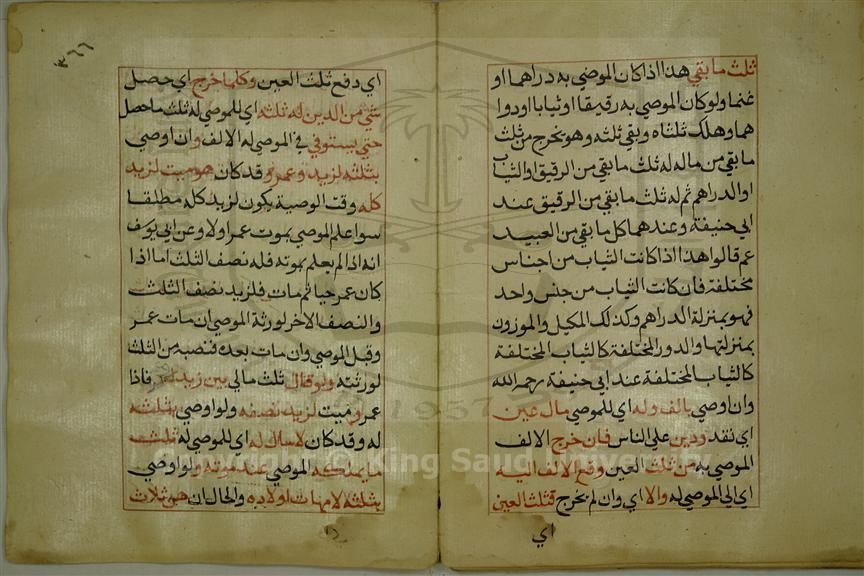 ثلث ما بقي هذا اذا كان الموصي به دراهما او
غنما ولو كان الموصي به رقيقا او ثيابا او دوا
هما وهلك ثلثاه وبقي ثلثه وهو يخرج من ثلث
ما بقي من ماله له ثلث ما بقي من الرقيق او الثياب
او الدراهم ثم له ثلث ما بقي من الرقيق عند
ابي حنيفة وعندهما كل ما بقي من العبيد
عم قالوا هذا اذا كانت الثياب من اجناس
مختلفة فان كانت الثياب من جنس واحد
فهو بمنزلة الدراهم وكذلك المكيل والموزون
بمنزلتها والدور المختلفة كالثياب المختلفة
كالثياب المختلفة عند ابي حنيفة رحمه الله
وان اوصي بالف وله اي للموصي مال عين
اي نقد ودين علي الناس فان خرج الالف
الموصي به من ثلث العين دفع الالف اليه
اي الي الموصي له والا اي وان لم يخرج فثلث العين
اي
٣٦٦
اي دفع ثلث العين وكلما خرج اي حصل
شي من الدين له ثلثه اي للموصي له ثلث ما حصل
حتي يستوفي في الموصي له الالف وان اوصي
بثلثه لزيد وعمرو وقد كان هو ميت لزيد
كله وقت الوصية يكون لزيد كله مطلقا
سوا علم الموصي بموت عمر اولا وعن ابي يوسف
انه اذا لم يعلم بموته فله نصف الثلث اما اذا
كان عمر حيا ثم مات فلزيد نصف الثلث
والنصف الاخر لورثة الموصي ان مات عمر
وقبل الموصي وان مات بعده فنصبه من الثلث
لورثته ولو قال ثلث مالي بين زيد فاذا
عمرو ميت لزيد نصفه ولو اوصي بثلثه
له وقد كان لا مال له اي للموصي له ثلث
ما يملكه الموصي عند موته ولو اوصي
بثلثه لامهات اولاده والحال ان هن ثلاث